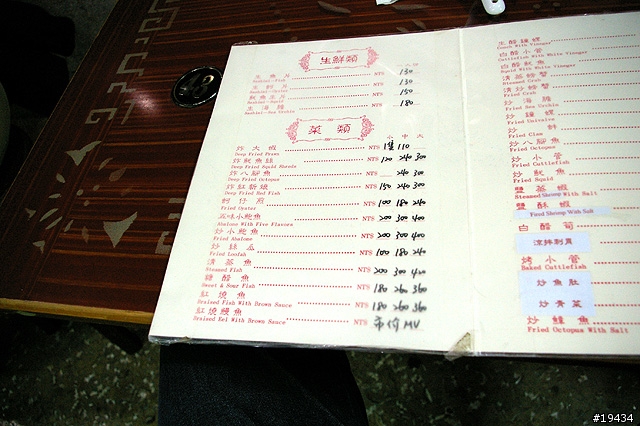 生鮮類
生魚片 NT$ 130
Sashimi-Fish
NT$ 130
魷魚生片 NT$ 150
Sashimi-Squid
生海膽 NT$ 180
Sashimi-Sea Urchin
菜類
小 中 大
炸大蝦 NT$ 1隻110
Deep Fried Prawn
炸魷魚絲 NT$ 120 240 300
Deep Fried Squid Shreds
炸八腳魚 NT$ 240 300
Deep Fried Octopus
炸紅新娘 NT$ 150 240 300
Deep Fried Red Fish
蚵仔煎 NT$ 100 180 240
Fried Oyster
五味小鮑魚 NT$ 200 300 400
Abalone With Five Flavors
炒小鮑魚 NT$ 200 300 400
Fried Abalone
炒絲瓜 NT$ 100 180 240
Fried Loofah
清蒸魚 NT$ 200 300 420
Steamed Fish
糖醋魚 NT$ 180 260 360
Sweet & Sour Fish
紅燒魚 NT$ 180 260 360
Braised Fish With Brown Sauce
紅燒鰻魚 NT$ 市價
Braised Eel With Brown Sauce
生醋鐘螺
Conch With Vinegar
白醋小管
Cuttlefish With White Vinegar
白醋魷魚
Squid With White Vinegar
清蒸螃蟹
Steamed Crab
清炒螃蟹
Fried Crab
炒海膽
Fried Sea Urchin
炒鐘螺
Fried Univalve
炒蚶
Fried Clam
炒八腳魚
Fried Octopus
炒小管
Fried Cuttlefish
炒魷魚
Fried Squid
鹽蒸蝦
Steamed Shrimp With Salt
鹽酥蝦
Fried Shrimp With Salt
白醋筍
涼拌刺肩
烤小管
Baked Cuttlefish
炒魚肚
炒青菜
炒鱆魚
Fried Octopus With Salt
#19434